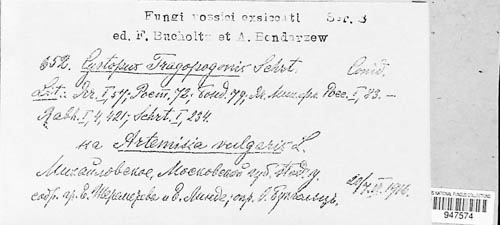 Fungi rossici exsiccati Ser. B
ed. F. Bucholtz et A. Bondarzew
652. Cystopus Tragopogonis Schrt. Conid.
Lit.: Рост. 72; Бонд. 79,
Rabh. I, 4, 421; Schrt. I, 234.
на Artemisia vulgaris L.
Михайловское, Московской губ. Под. у.
собр. гр. Е. Шереметева и Э. Линде, опр. Бухгольц.
US NATIONAL FUNGUS COLLECTIONS
947574